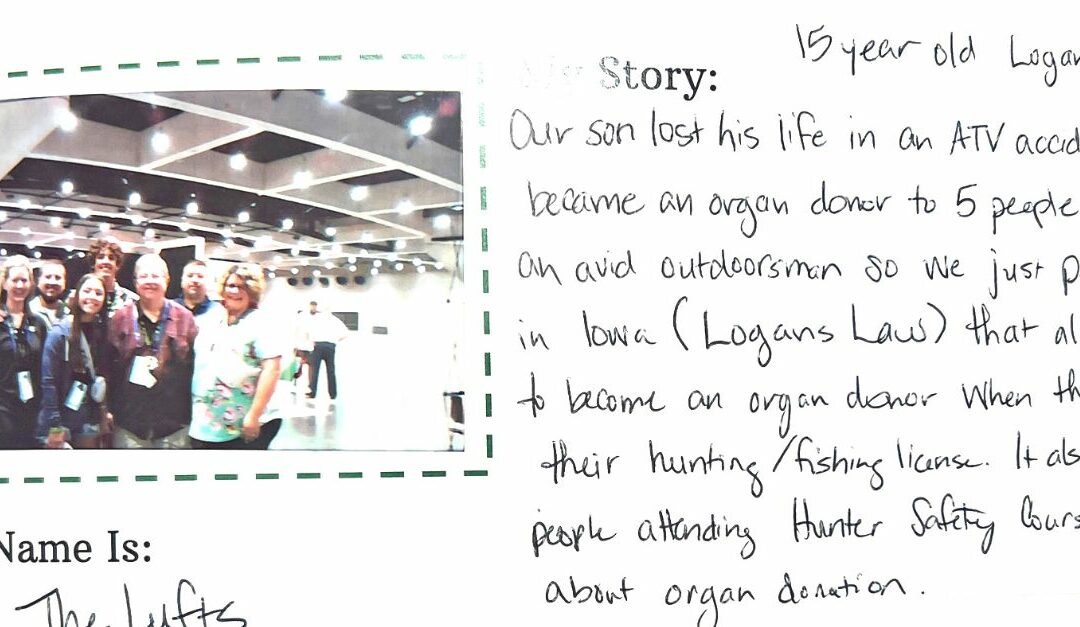 15 year old Logan
My Story:
Our son lost his life in an ATV accid
became an organ donor to 5 people
an avid outdoorsman so we just p
in Iowa (Logans Law) that al
to become an organ donor when th
their hunting/fishing license. It als
people attending Hunter Safety Cours
about organ donation.
Name Is:
The Lufts